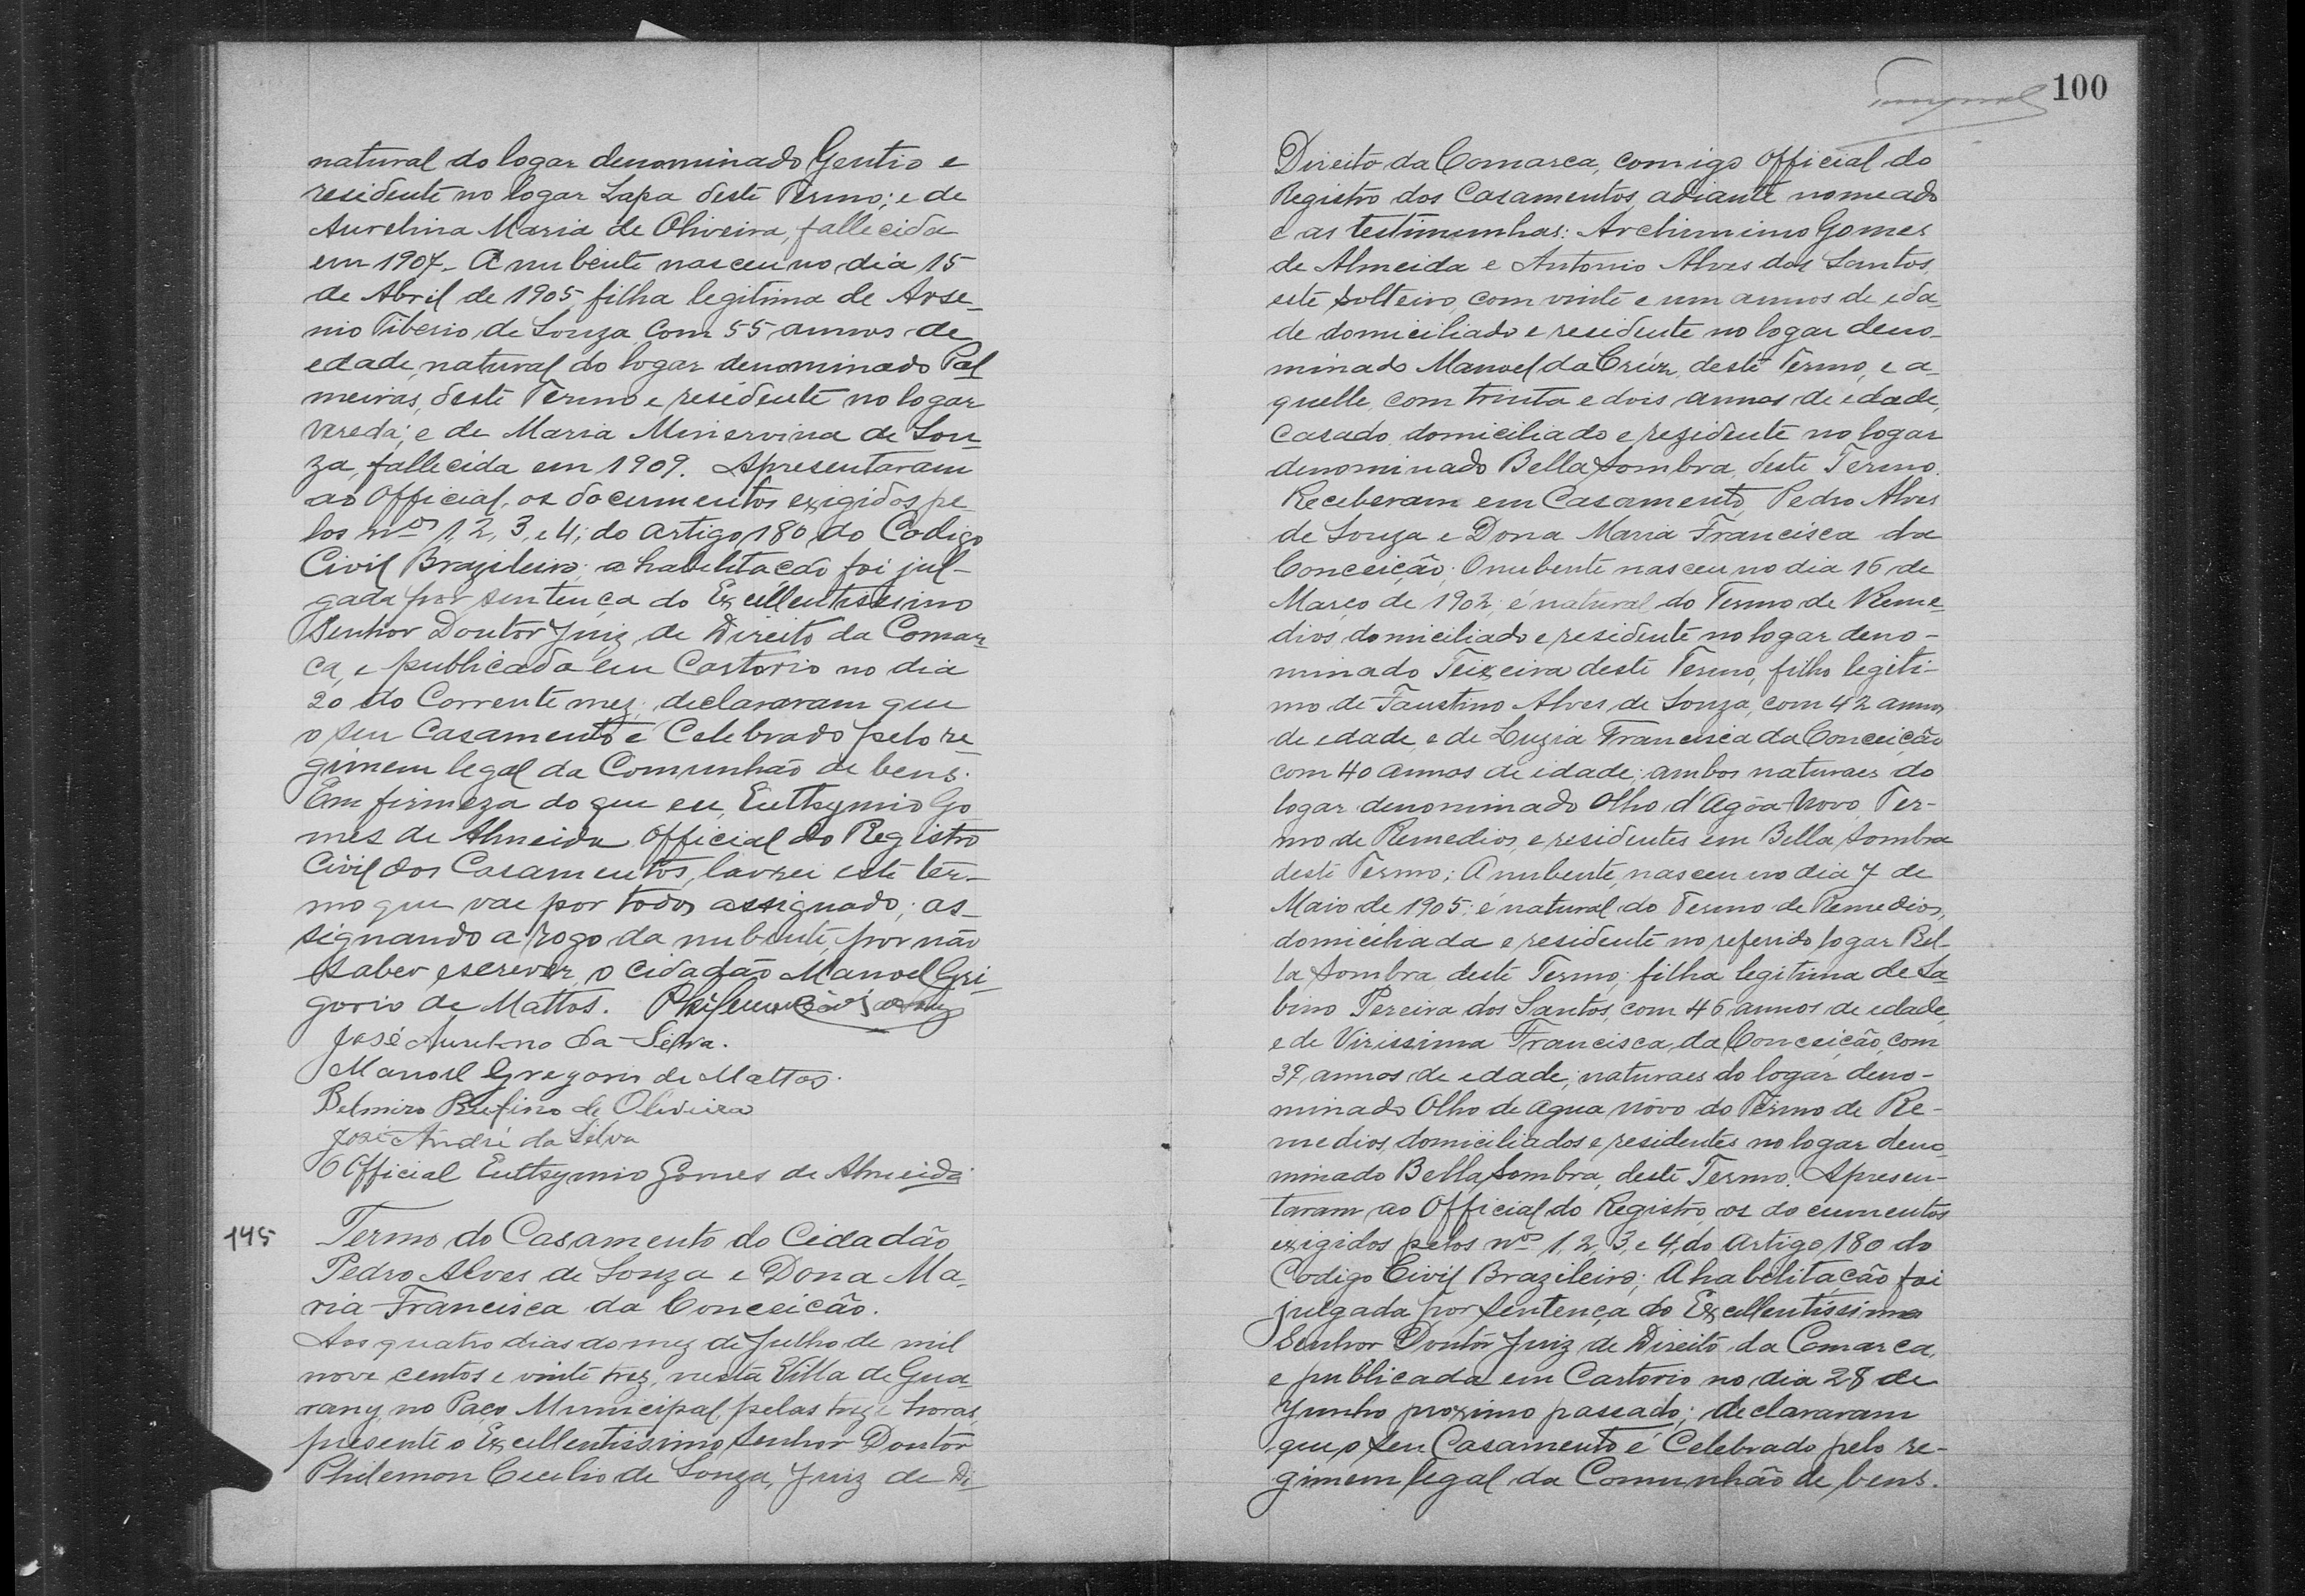 natural do logar denominado Gentio e
residente no logar Lapa deste Termo; e de
Aurelina Maria de Oliveira, fallecida
em 1907. A nubente nasceu no dia 15
de Abril de 1905, filha legitima de Arse-
nio Tiberio de Souza com 55 annos de
edade, natural do logar denominado Pal
meiras, deste Termo e residente no logar
Vereda; e de Maria Minervina de Sou
za, fallecida em 1909. Apresentaram
ao Official, os documentos exigidos pe-
los nos 1, 2, 3, e 4; do artigo 180 do Codigo
Civil Brazileiro; a habilitação foi jul-
gada por sentença do Excellentissimo
Senhor Doutor Juiz de Direito da Comar-
ca, e publicada em Cartorio no dia
20 do Corrente mez, declararam que
o seu Casamento é Celebrado pelo re-
gimem legal da Comunhão de bens.
Em firmeza do que eu, Euthymio Go
mes de Almeida Official do Registro
Civil dos Casamentos, lavrei este ter-
mo que vae por todos assignado; as-
signando a rogo da nubente, por não
saber escrever, o cidadão Manoel Gri-
gorio de Mattos.
José Aureleno da Selva.
Manoel Gregorio de Mattos.
Belmiro Rufino de Oliveira
José André da Silva
O Official Euthymio Gomes de Almeida
145 Termo do Casamento do Cidadão
Pedro Alves de Souza e Dona Ma-
ria Francisca da Conceicão.
Aos quatro dias do mez de Julho de mil
nove centos e vinte trez, nesta Villa de Gua-
rany, no Paço Municipal, pelas treze horas,
presente o Excellentissimo Senhor Doutor
Philemon Cecilio de Souza, Juiz de Di-
100
Direito da Comarca, comigo Official do
Registro dos Casamentos, adiante nomeado
e as testimunhas: Archimimo Gomes
de Almeida e Antonio Alves dos Santos,
este solteiro, com vinte e um annos de eda-
de domiciliado e residente no logar deno-
minado Manoel da Crúz, deste Termo, e a-
quelle, com trinta e dois annos de edade,
Casado, domiciliado e rezidente no logar
denominado Bella Sombra, deste Termo.
Receberam em Casamento, Pedro Alves
de Souza e Dona Maria Francisca da
Conceição; O nubente nasceu no dia 16 de
Março de 1902; é natural do Termo de Reme-
dios, domiciliado e residente no logar deno-
minado Teixeira deste Termo, filho legiti-
mo de Faustino Alves de Souza, com 42 annos
de edade, e de Luzia Francisca da Conceicão
com 40 annos de idade; ambos naturaes do
logar denominado Olho d'Agôa-Novo, Ter-
mo de Remedios, e residentes em Bella Sombra
deste Termo; A nubente, nasceu no dia 7 de
Maio de 1905; é natural do Termo de Remedios,
domiciliada e residente no referido logar Bel-
la Sombra, deste Termo; filha legitima de Sa-
bino Pereira dos Santos, com 46 annos de edade,
e de Virissima Francisca da Conceição, com
37 annos de edade; naturaes do logar deno-
minado Olho de agua nôvo do Termo de Re-
medios, domiciliados e residentes no logar deno-
minado Bella Sombra, deste Termo. Apresen-
taram ao Official do Registro, os documentos
exigidos pelos nos 1, 2, 3, e 4, do artigo 180 do
Codigo Civil Brazileiro; A habelitação foi
julgada por sentença do Excellentissimo
Senhor Doutôr Juiz de Direito da Comarca,
e publicada em Cartorio no dia 28 de
Junho proximo passado; declararam
que o seu Casamento é Celebrado pelo re-
gimem legal da Comunhão de bens.